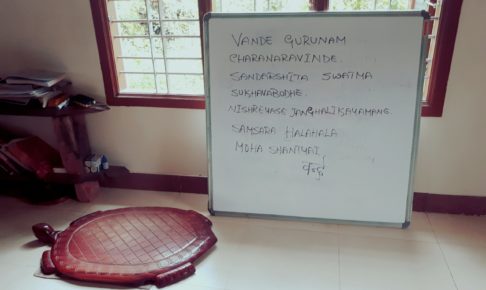 VANDE GURUNAM
CHARANARAVINDE.
SANDARSHITA SWATMA
SUKHAVABODHE.
NISHREYASE JANGHALIKAYAMANE.
SAMSARA HALAHALA
MOHA SHANTYAI